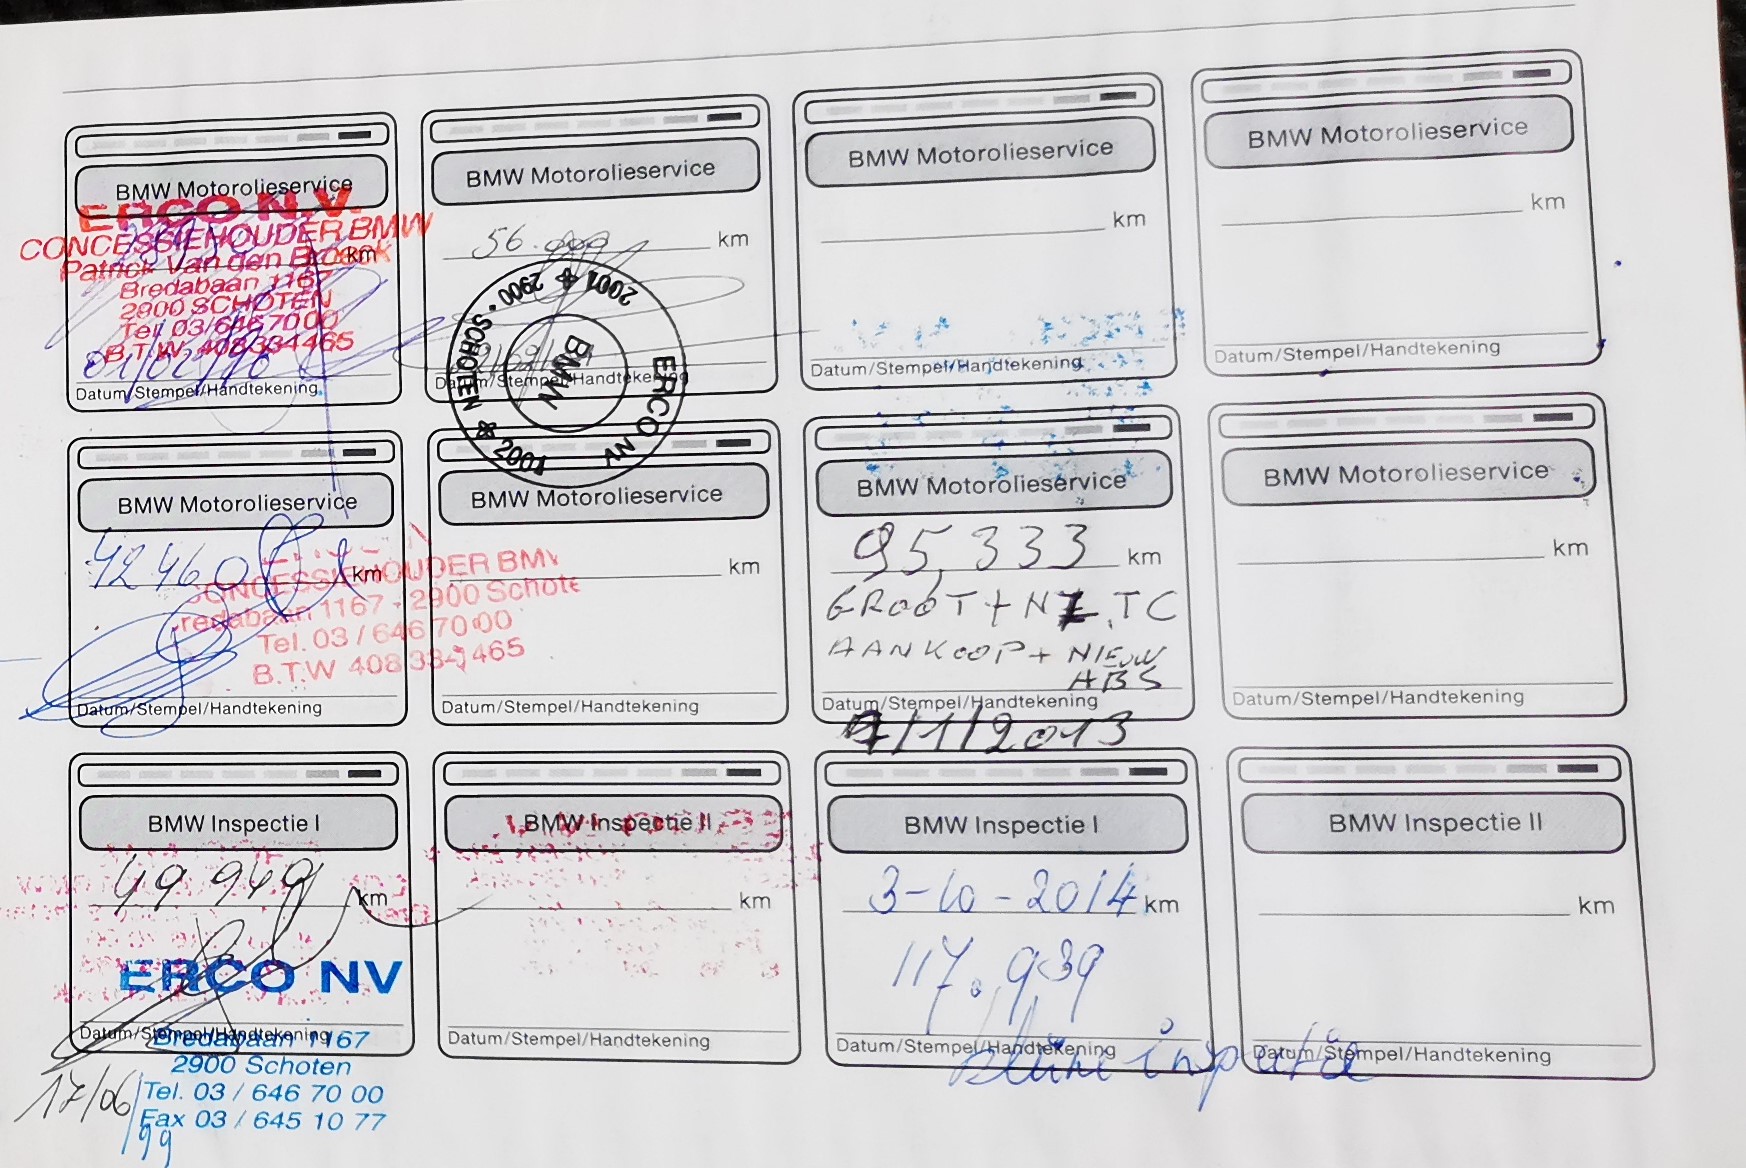 BMW Motorolieservice
ERCO N.V.
CONCESSIEHOUDER BMW
Patrick Van den Broeck
km
Bredabaan 1167
2900 SCHOTEN
Tel. 03/646 70 00
B.T.W. 408334465
Datum/Stempel/Handtekening
BMW Motorolieservice
56.000 km
ERCO NV 2001 2900 - SCHOTEN 2001
BMW
Datum/Stempel/Handtekening
BMW Motorolieservice
km
Datum/Stempel/Handtekening
BMW Motorolieservice
km
Datum/Stempel/Handtekening
BMW Motorolieservice
42460 km
CONCESSIEHOUDER BMW
Bredabaan 1167 - 2900 Schoten
Tel. 03 / 646 70 00
B.T.W 408 334 465
Datum/Stempel/Handtekening
BMW Motorolieservice
km
Datum/Stempel/Handtekening
BMW Motorolieservice
95,333 km
GROOT + TC
AANKOOP + NIEUW
ABS
Datum/Stempel/Handtekening
7/1/2013
BMW Motorolieservice
km
Datum/Stempel/Handtekening
BMW Inspectie I
49 949 km
ERCO NV
Datum/Stempel/Handtekening
Bredabaan 1167
2900 Schoten
Tel. 03 / 646 70 00
Fax 03 / 645 10 77
17/06/99
BMW Inspectie II
km
Datum/Stempel/Handtekening
BMW Inspectie I
3-10-2014 km
117.939
Datum/Stempel/Handtekening
BMW Inspectie II
km
Datum/Stempel/Handtekening